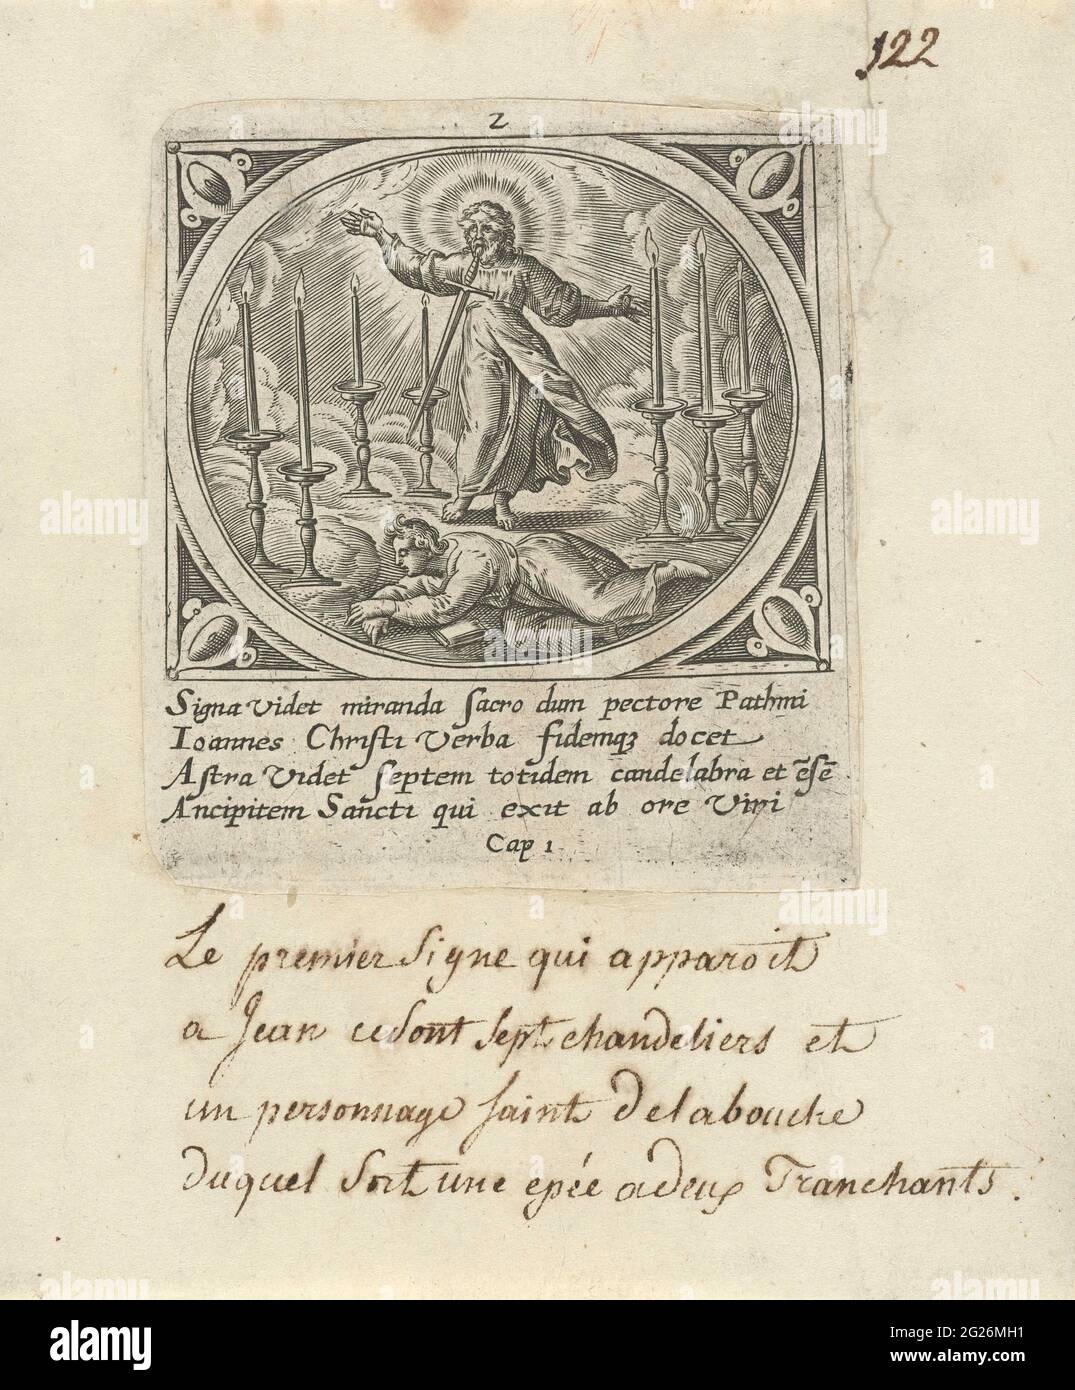 122
2
Signa Videt miranda sacro dum pectore Pathmi
Ioannes Christi Verba fidemqȝ docet
Astra Videt septem totidem candelabra et ēsē
Ancipitem Sancti qui exit ab ore Viri
Cap 1
Le premier signe qui apparoit
a Jean ce sont sept chandeliers et
un personnage saint de la bouche
duquel sort une epée a deux Tranchants.
alamy
alamy
alamy
alamy
alamy
alamy
alamy
alamy
alamy
Image ID: 2G26MH1
www.alamy.com